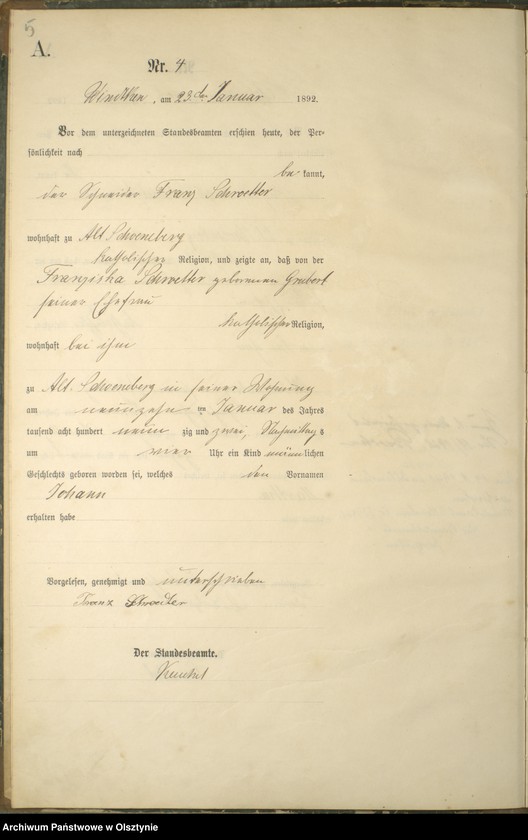 5
A.
Nr. 4
am 23ten Januar 1892.
Vor dem unterzeichneten Standesbeamten erschien heute, der Per-
sönlichkeit nach
be kannt,
der Schneider Franz Schroetter
wohnhaft zu Alt Schoeneberg
katholischer Religion, und zeigte an, daß von der
Franziska Schroetter geborenen Grabert
seiner Ehefrau
katholischer Religion,
wohnhaft bei ihm
zu Alt. Schoeneberg in seiner Wohnung
am neunzehn ten Januar des Jahres
tausend acht hundert neun zig und zwei, Nachmittag s
um vier Uhr ein Kind männlichen
Geschlechts geboren worden sei, welches den Vornamen
Johann
erhalten habe
Vorgelesen, genehmigt und unterschrieben
Franz
Der Standesbeamte.
Archiwum Państwowe w Olsztynie